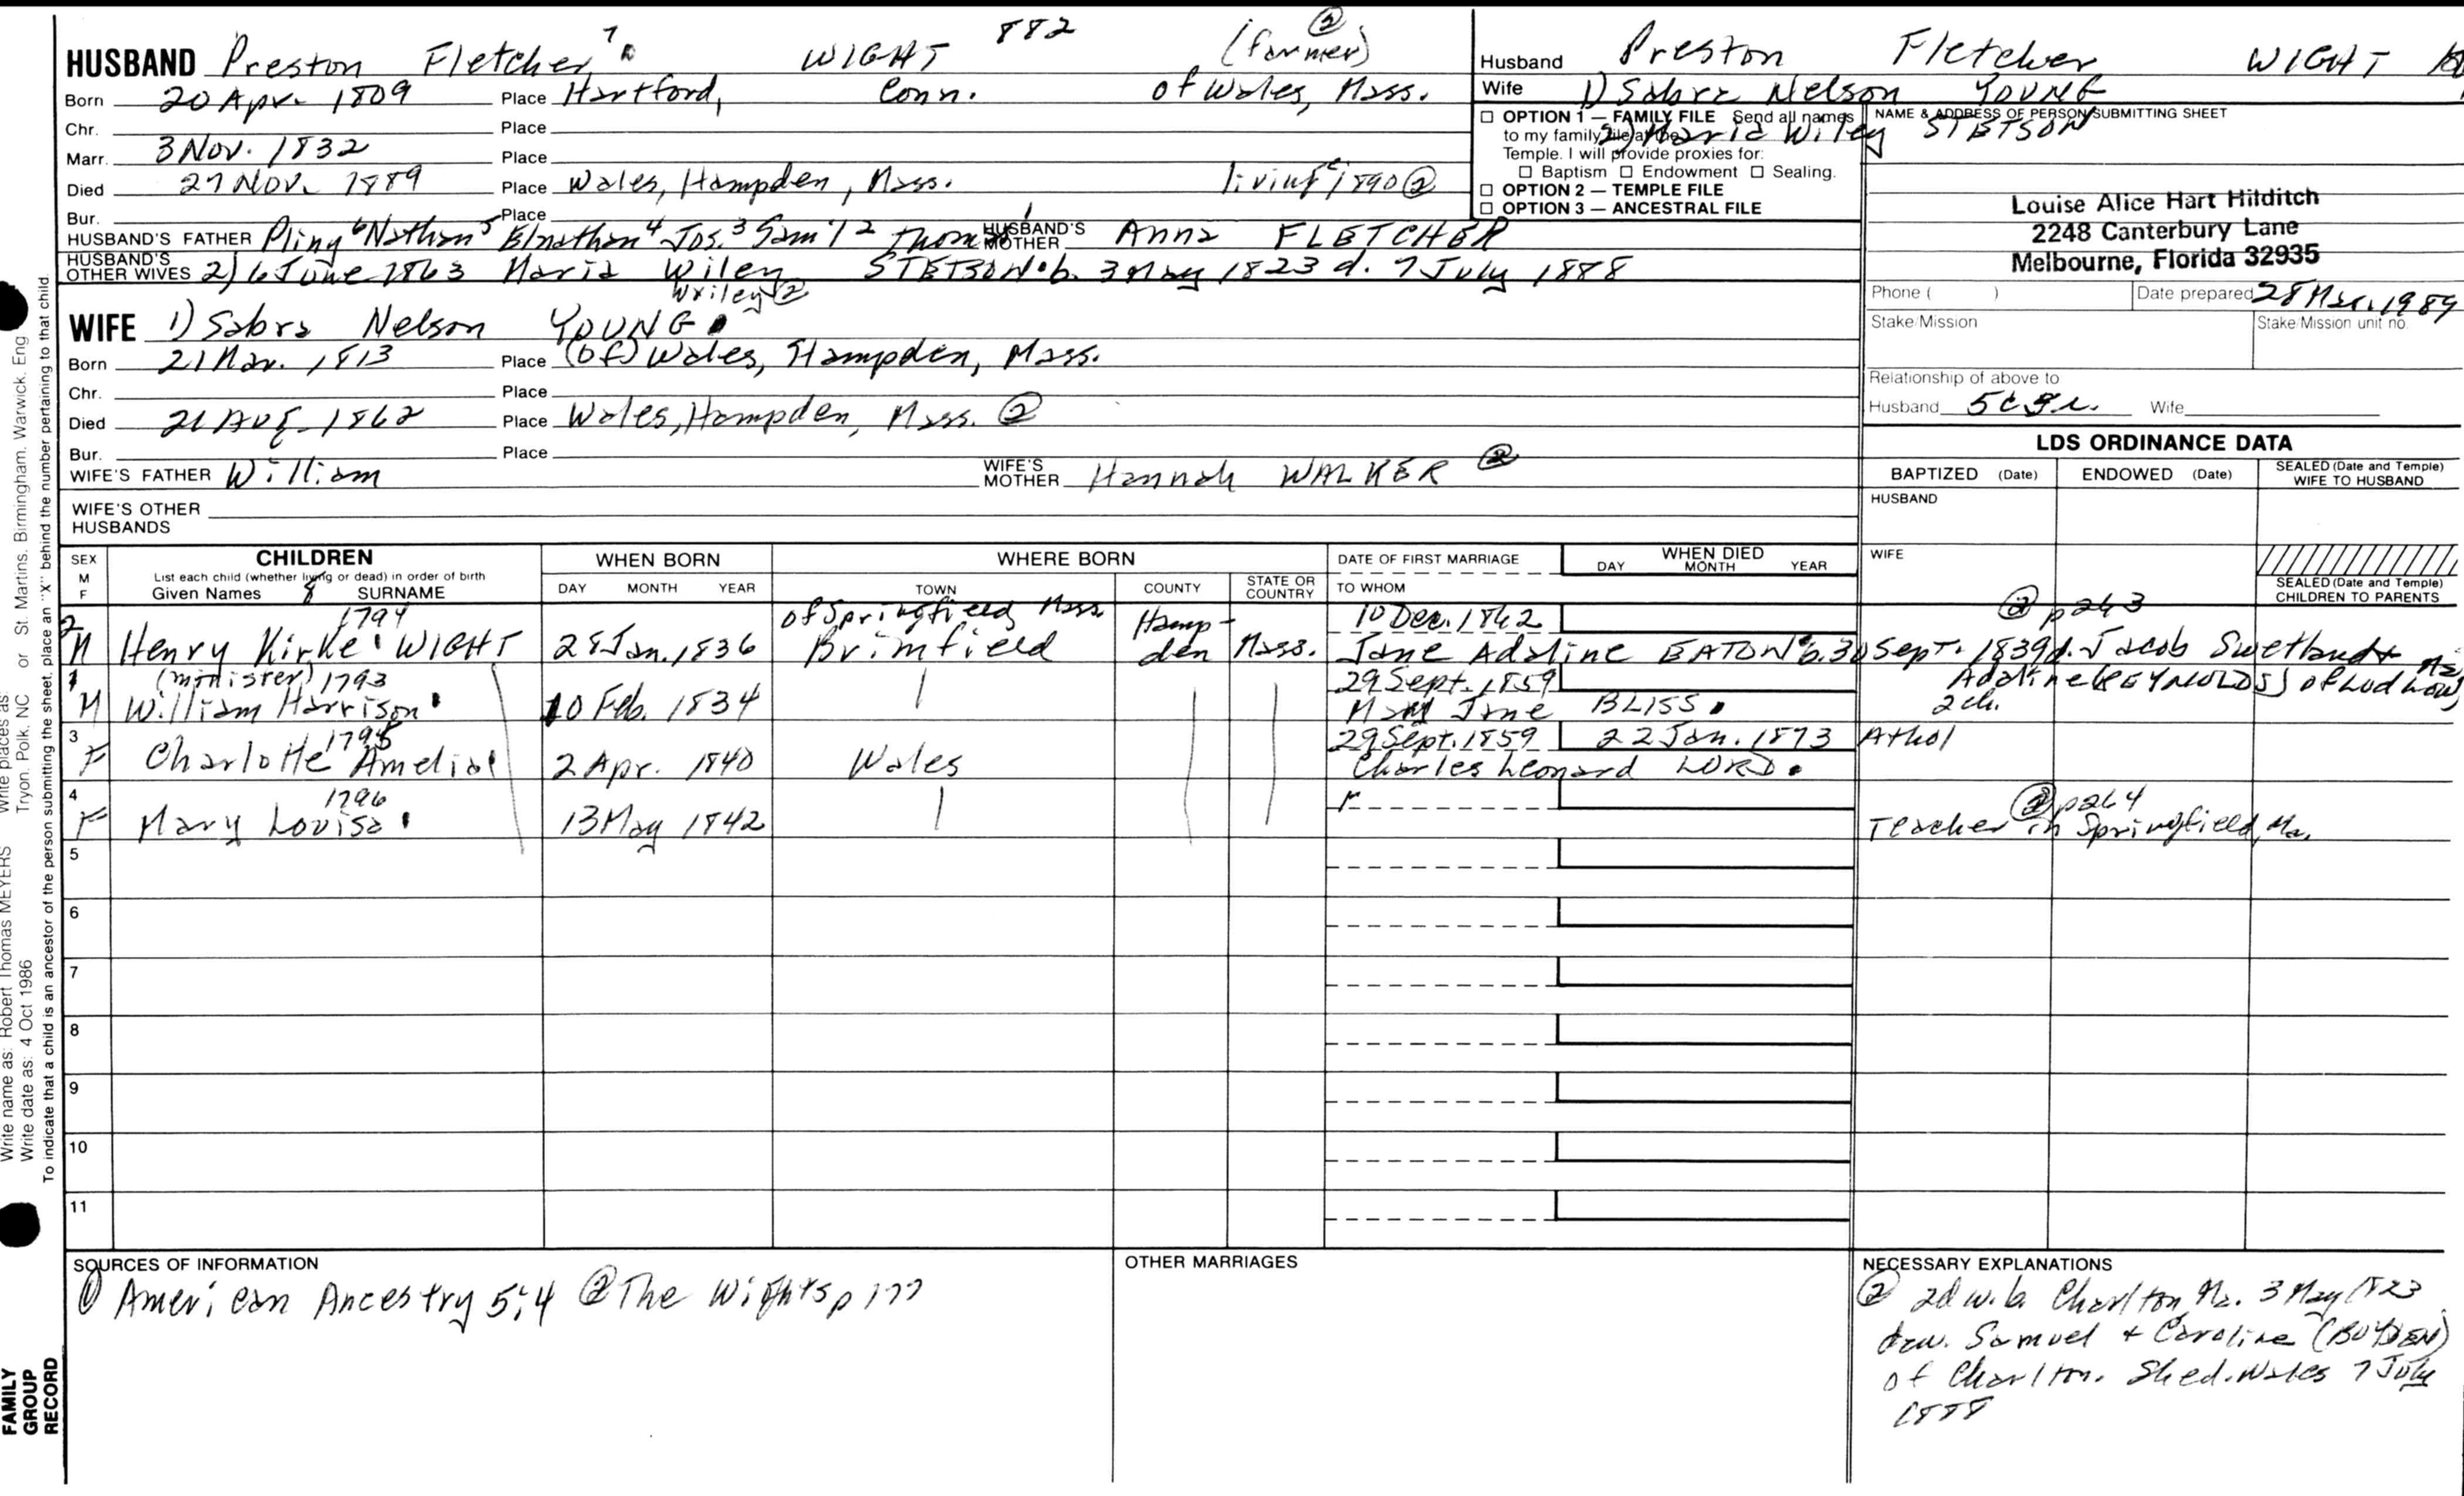 HUSBAND Preston Fletcher 7 WIGHT 882 (farmer) ②
Born 20 Apr. 1809 Place Hartford, Conn. of Wales, Mass.
Chr. Place
Marr. 3 Nov. 1832 Place
Died 27 Nov. 1889 Place Wales, Hampden, Mass. living 1890 ②
Bur. Place
HUSBAND'S FATHER Pliny 6 Nathan 5 Elnathan 4 Jos. 3 Sam'l 2 Thomas 1 HUSBAND'S MOTHER Anna FLETCHER
HUSBAND'S OTHER WIVES 2) 6 June 1863 Maria Wiley STETSON b. 3 May 1823 d. 7 July 1888
Wriley ②
WIFE 1) Sabra Nelson YOUNG
Born 21 Mar. 1813 Place (of) Wales, Hampden, Mass.
Chr. Place
Died 21 Aug. 1862 Place Wales, Hampden, Mass. ②
Bur. Place
WIFE'S FATHER William WIFE'S MOTHER Hannah WALKER ②
WIFE'S OTHER HUSBANDS
Husband Preston Fletcher WIGHT
Wife 1) Sabra Nelson YOUNG
2) Maria Wiley STETSON
☐ OPTION 1 — FAMILY FILE Send all names
to my family file at the
Temple. I will provide proxies for:
☐ Baptism ☐ Endowment ☐ Sealing.
☐ OPTION 2 — TEMPLE FILE
☐ OPTION 3 — ANCESTRAL FILE
NAME & ADDRESS OF PERSON SUBMITTING SHEET
Louise Alice Hart Hilditch
2248 Canterbury Lane
Melbourne, Florida 32935
Phone ( ) Date prepared 28 Mar. 1989
Stake/Mission Stake/Mission unit no.
Relationship of above to
Husband 5cgr. Wife
LDS ORDINANCE DATA
BAPTIZED (Date) ENDOWED (Date) SEALED (Date and Temple) WIFE TO HUSBAND
HUSBAND
WIFE
SEALED (Date and Temple) CHILDREN TO PARENTS
SEX M F CHILDREN WHEN BORN WHERE BORN DATE OF FIRST MARRIAGE WHEN DIED
List each child (whether living or dead) in order of birth
Given Names SURNAME DAY MONTH YEAR TOWN COUNTY STATE OR COUNTRY TO WHOM DAY MONTH YEAR
8
2 1794 of Springfield Mass. 10 Dec. 1862 ② p263
M Henry Kirke WIGHT 28 Jan. 1836 Brimfield Hampden Mass. Jane Adaline EATON b. 30 Sept. 1839 d. Jacob Swetland +
1 (minister) 1793 29 Sept. 1859 Adaline (REYNOLDS) of Ludlow, Ma.
M William Harrison 10 Feb. 1834 Mary Jane BLISS 2 ch.
3 1795 29 Sept. 1859 22 Jan. 1873 Athol
F Charlotte Amelia 2 Apr. 1840 Wales Charles Leonard LORD
4 1796 ② p264
F Mary Louisa 13 May 1842 Teacher in Springfield, Ma.
5
6
7
8
9
10
11
SOURCES OF INFORMATION
① American Ancestry 5:4 ② The Wights p 177
OTHER MARRIAGES
NECESSARY EXPLANATIONS
② 2d w. b. Charlton, Ma. 3 May 1823
dau. Samuel + Caroline (BOYDEN)
of Charlton. She d. Wales 7 July
1888
Write places as: Tryon, Polk, NC or St. Martins, Birmingham, Warwick, Eng
Write name as: Robert Thomas MEYERS
Write date as: 4 Oct 1986
To indicate that a child is an ancestor of the person submitting the sheet, place an "X" behind the number pertaining to that child.
FAMILY GROUP RECORD